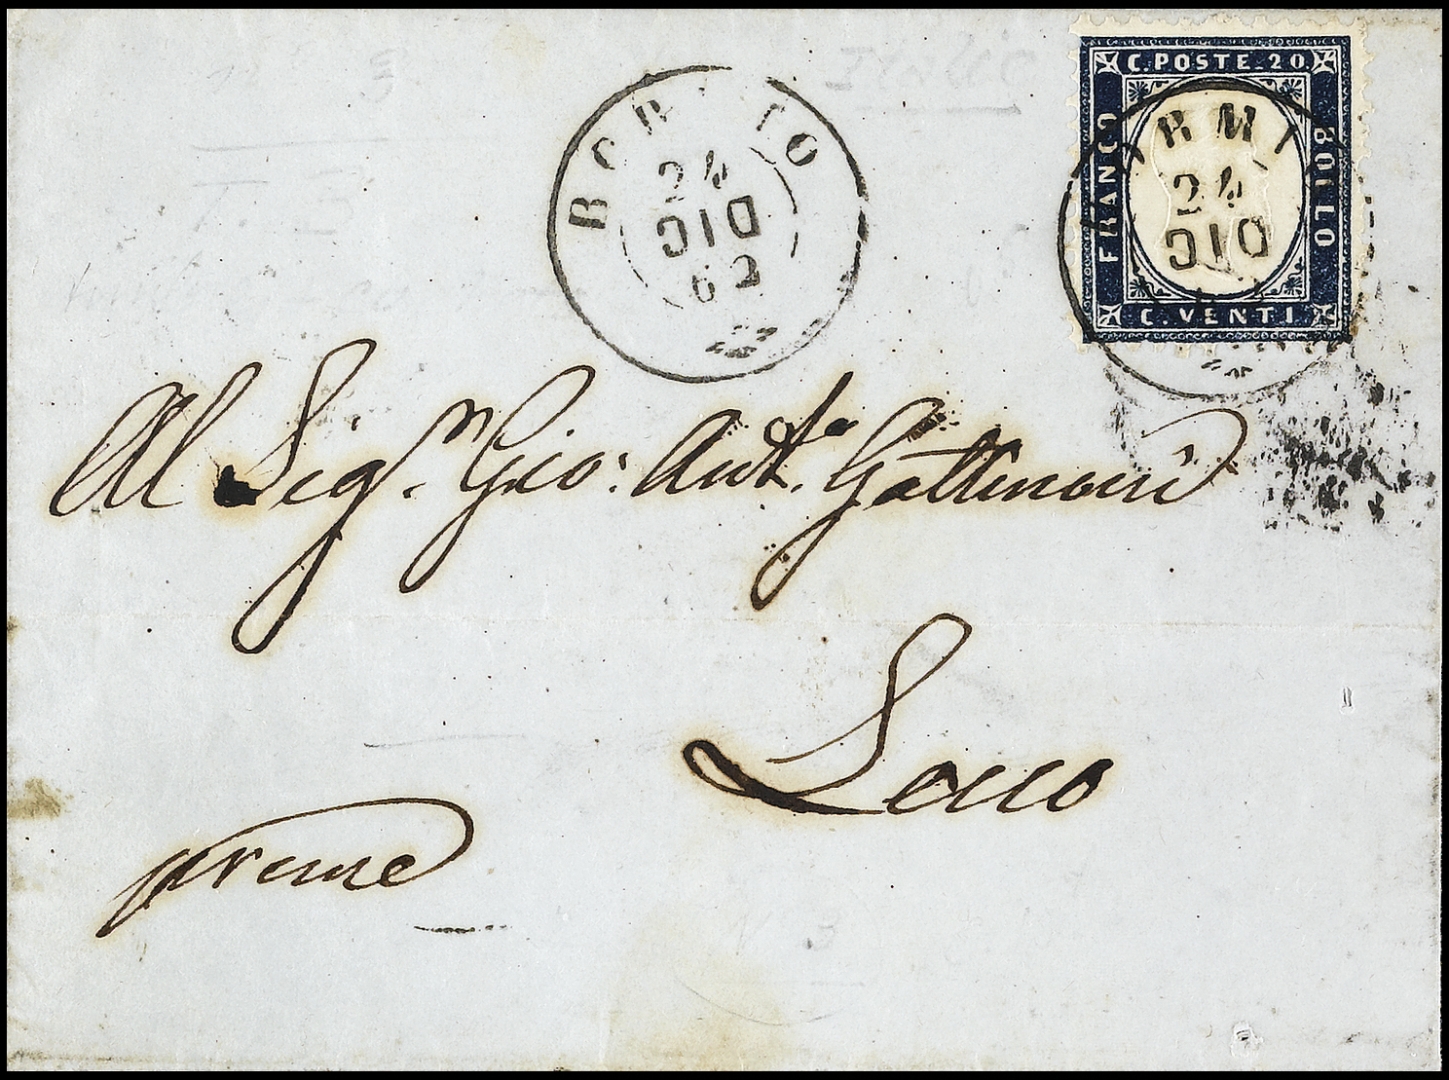 C. POSTE. 20
FRANCO
BOLLO
C. VENTI
BORMIO
24
DIC
62
ORMIO
24
DIC
Al Sig.r Gio: Ant.o
Lecco
preme